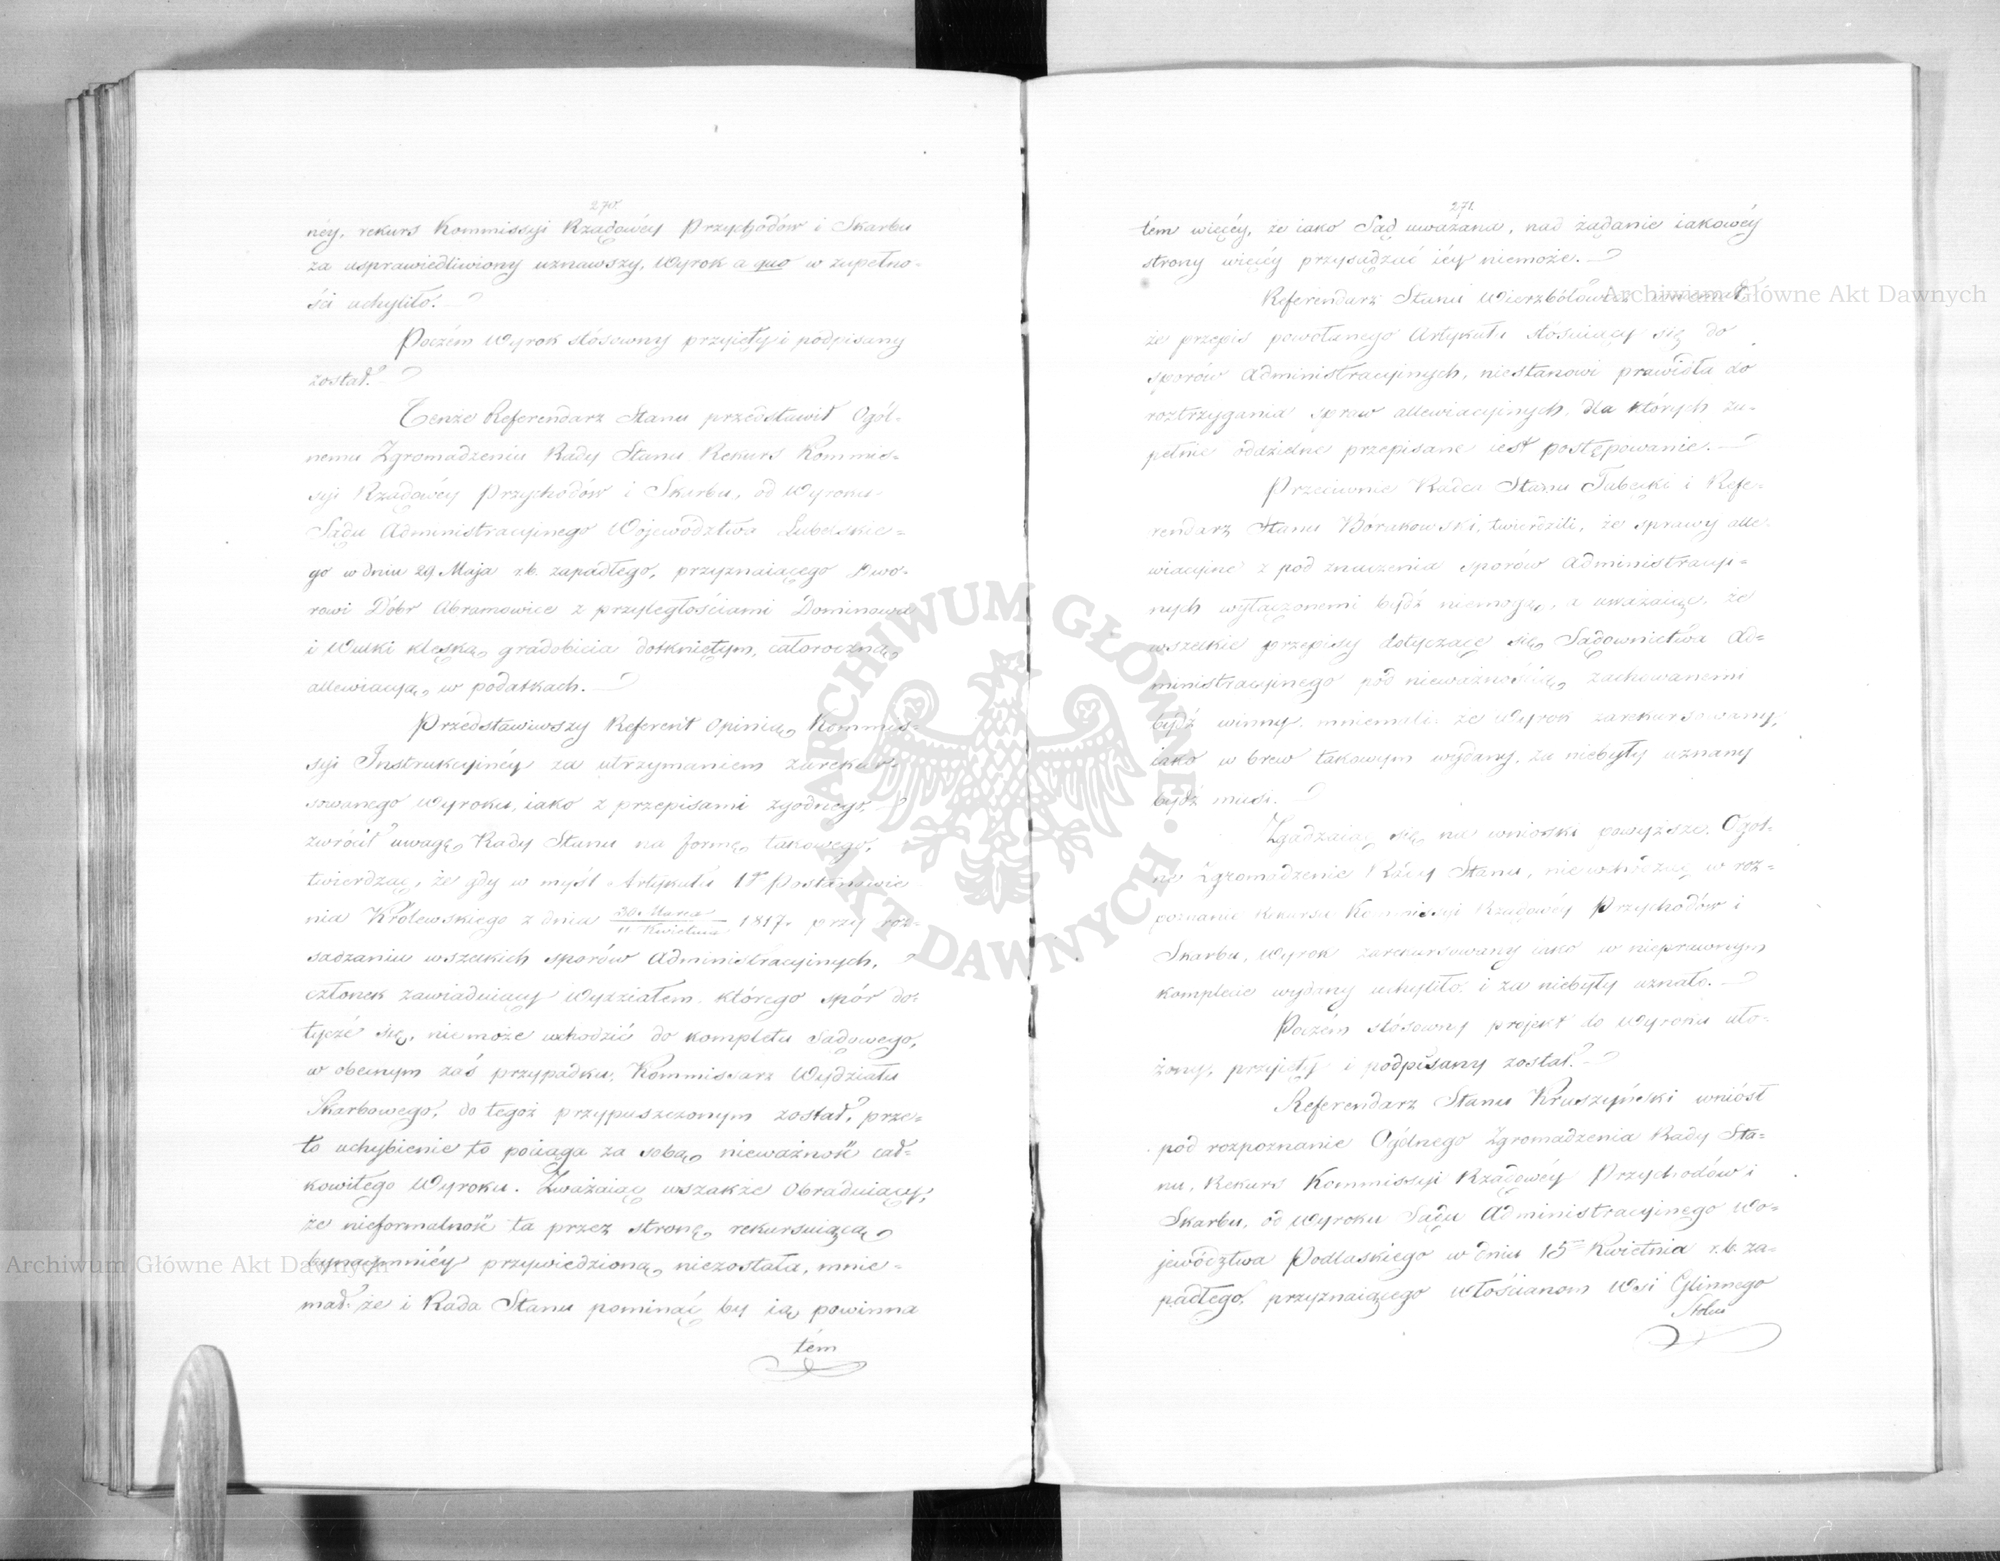 270.
néy, rekurs Kommissyi Rządowéy Przychodów i Skarbu
za usprawiedliwiony uznawszy, Wyrok a quo w zupełno-
ści uchyliło.
Poczém Wyrok stósowny przyięty i podpisany
został.
Tenże Referendarz Stanu przedstawił Ogól-
nemu Zgromadzeniu Rady Stanu Rekurs Kommis-
syi Rządowéy Przychodów i Skarbu, od Wyroku
Sądu Administracyjnego Województwa Lubelskie-
go w dniu 29 Maja r.b. zapadłego, przyznaiącego Dwo-
rowi Dóbr Abramowice z przyległościami Dominowa
i Wulki klęską gradobicia dotkniętym, całoroczną
allewiacyą w podatkach.
Przedstawiwszy Referent Opinią Kommis-
syi Instrukcyinéy za utrzymaniem zarekur-
sowanego Wyroku, iako z przepisami zgodnego,
zwrócił uwagę Rady Stanu na formę takowego,
twierdząc, że gdy w myśl Artykułu 1go Postanowie-
nia Królewskiego z dnia 30 Marca / 11 Kwietnia 1817. przy roz-
sądzaniu wszelkich sporów Administracyjnych,
członek zawiaduiący Wydziałem którego spór do-
tyczé się, niemoże wchodzić do kompletu Sądowego,
w obecnym zaś przypadku, Kommissarz Wydziału
Skarbowego, do tegoż przypuszczonym został, prze-
to uchybienie to pociąga za sobą nieważność cał-
kowitego Wyroku. Zważaiąc wszakże Obraduiący,
że nieformalność ta przez stronę rekursuiącą
bynaymniéy przywiedzioną niezostała, mnie-
mał że i Rada Stanu pominąć by ią powinna
tém
271.
tém więcéy, że iako Sąd uważana, nad żądanie iakowéy
strony więcéy przysądzać iéy niemoże.
Referendarz Stanu Wierzbołowicz mniemał
że przepis powołanego Artykułu stósuiący się do
sporów Administracyjnych, niestanowi prawidła do
roztrzygania spraw allewiacyjnych, dla których zu-
pełnie oddzielne przepisane iest postępowanie.
Przeciwnie Radca Stanu Tabęcki i Refe-
rendarz Stanu Borakowski, twierdzili, że sprawy alle-
wiacyine z pod znaczenia sporów Administracyi-
nych wyłączonemi bydź niemogą, a uważaiąc, że
wszelkie przepisy dotyczące się Sądownictwa Ad-
ministracyjnego pod nieważnością zachowanemi
bydź winny, mniemali że Wyrok zarekursowany,
iako w brew takowym wydany, za niebyły uznany
bydź musi.
Zgadzaiąc się na wnioski powyższe, Ogól-
ne Zgromadzenie Rady Stanu, niewchodząc w roz-
poznanie Rekursu Kommissyi Rządowéy Przychodów i
Skarbu, Wyrok zarekursowany iako w nieprawnym
komplecie wydany uchyliło i za niebyły uznało.
Poczém stósowny projekt do Wyroku uło-
żony, przyięty i podpisany został.
Referendarz Stanu Kruszyński wniósł
pod rozpoznanie Ogólnego Zgromadzenia Rady Sta-
nu, Rekurs Kommissyi Rządowéy Przychodów i
Skarbu, od Wyroku Sądu Administracyjnego Wo-
jewództwa Podlaskiego w dniu 15 Kwietnia r.b. za-
padłego, przyznaiącego włościanom Wsi Glinnego
Archiwum Główne Akt Dawnych
Archiwum Główne Akt Dawnych
ARCHIWUM GŁÓWNE AKT DAWNYCH